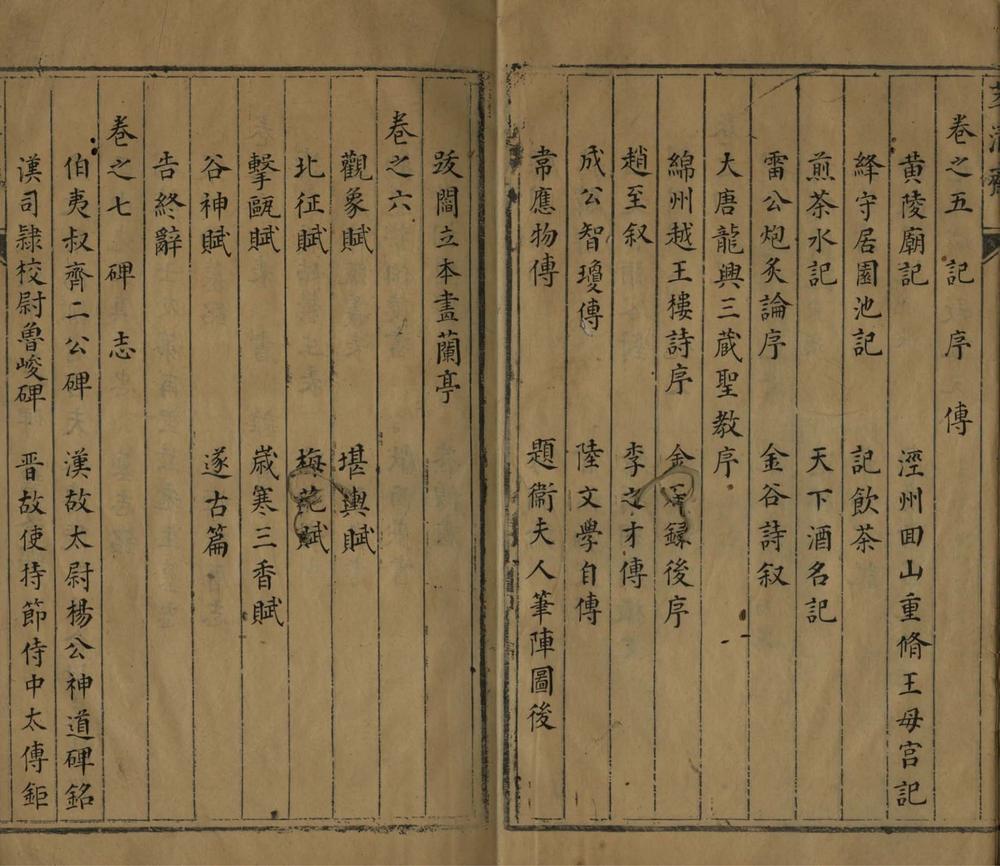 卷之五 記 序 傳
黃陵廟記 涇州回山重脩王母宮記
絳守居園池記 記飲茶
煎茶水記 天下酒名記
雷公炮炙論序 金谷詩叙
大唐龍興三蔵聖教序
綿州越王樓詩序 金石録後序
趙至叙 李之才傳
成公智瓊傳 陸文學自傳
韋應物傳 題衞夫人筆陣圖後
跋閻立本畫蘭亭
卷之六
觀象賦 堪輿賦
北征賦 梅花賦
擊甌賦 歲寒三香賦
谷神賦 遂古篇
告終辭
卷之七 碑 志
伯夷叔齊二公碑 漢故太尉楊公神道碑銘
漢司隷校尉魯峻碑 晋故使持節侍中太傅鉅